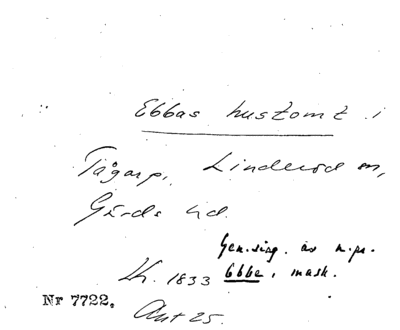 Ebbas hustomt i
Tågarp, Linderöd sn,
Gärds hd.
Gen. sing. av n. pr.
Lh. 1833 Ebbe, mask.
Nr 7722.
Akt 25.